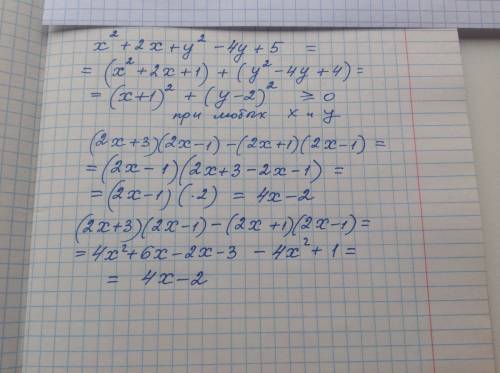 x² + 2x + y² - 4y + 5 =
= (x² + 2x + 1) + (y² - 4y + 4) =
= (x+1)² + (y-2)² ≥ 0
при любых x и y
(2x+3)(2x-1) - (2x+1)(2x-1) =
= (2x-1)(2x+3-2x-1) =
= (2x-1)(·2) = 4x-2
(2x+3)(2x-1) - (2x+1)(2x-1) =
= 4x² + 6x - 2x - 3 - 4x² + 1 =
= 4x - 2